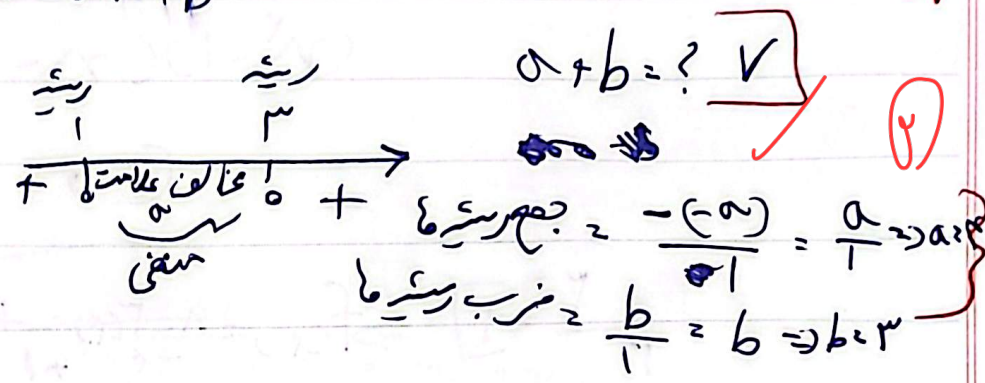 a + b = ? ۷
۲
ریشه ریشه
۱ ۳
+ ۰ مخالف علامت a ۰ +
منفی
جمع ریشه ها = -(-a)/1 = a/1 => a = ۴
ضرب ریشه ها = b/1 = b => b = ۳